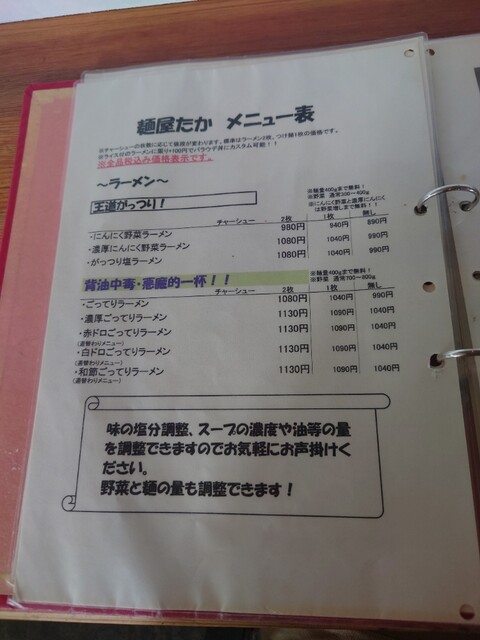 麺屋たか メニュー表
※チャーシューの枚数に応じて値段が変わります。標準はラーメン2枚、つけ麺1枚の価格です。
※ライス付のラーメンに限り+100円でバラウデ丼にカスタム可能!!
※全品税込み価格表示です。
～ラーメン～
※麺量400gまで無料!
※野菜 通常300～400g
※にんにく野菜と濃厚にんにく
は野菜増しまで無料!!
王道がっつり!
チャーシュー 2枚 1枚 無し
・にんにく野菜ラーメン 980円 940円 890円
・濃厚にんにく野菜ラーメン 1080円 1040円 990円
・がっつり塩ラーメン 1080円 1040円 990円
背油中毒・悪魔的一杯!!
※麺量400gまで無料!
※野菜 通常
チャーシュー 2枚 1枚 無し
・こってりラーメン 1080円 1040円 990円
・濃厚こってりラーメン 1130円 1090円 1040円
・赤ドロこってりラーメン 1130円 1090円 1040円
(週替わりメニュー)
・白ドロこってりラーメン 1130円 1090円 1040円
(週替わりメニュー)
・和節こってりラーメン 1130円 1090円 1040円
(週替わりメニュー)
味の塩分調整、スープの濃度や油等の量
を調整できますのでお気軽にお声掛けく
ださい。
野菜と麺の量も調整できます!